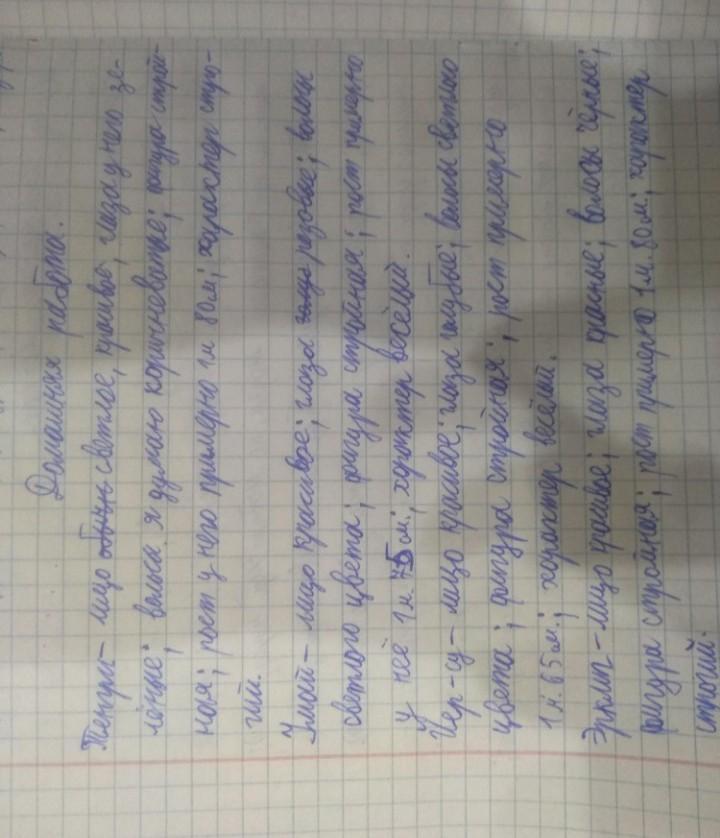 Домашная работа.
Тенгри- лицо обычн светлое, красивое; глаза у него зе-
лёные; волоса я думаю коричневатые; фигура строй-
ная; рост у него примерно 1м 80м; характер стро-
гий.
Умай- лицо красивое; глаза розовые; волосы
светлого цвета; фигура стройная; рост примерно
у неё 1м.75м.; характер весёлый.
Йер-су- лицо красивое; глаза голубые; волосы светлого
цвета; фигура стройная; рост примерно
1м.65м.; характер весёлый.
Эрклиг-лицо красивое; глаза красные; волосы чёрные;
фигура стройная; рост примерно 1м.80м.; характер
строгий.